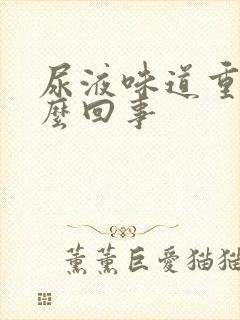 尿液味道重
麼回事
薰薰巨愛猫猫